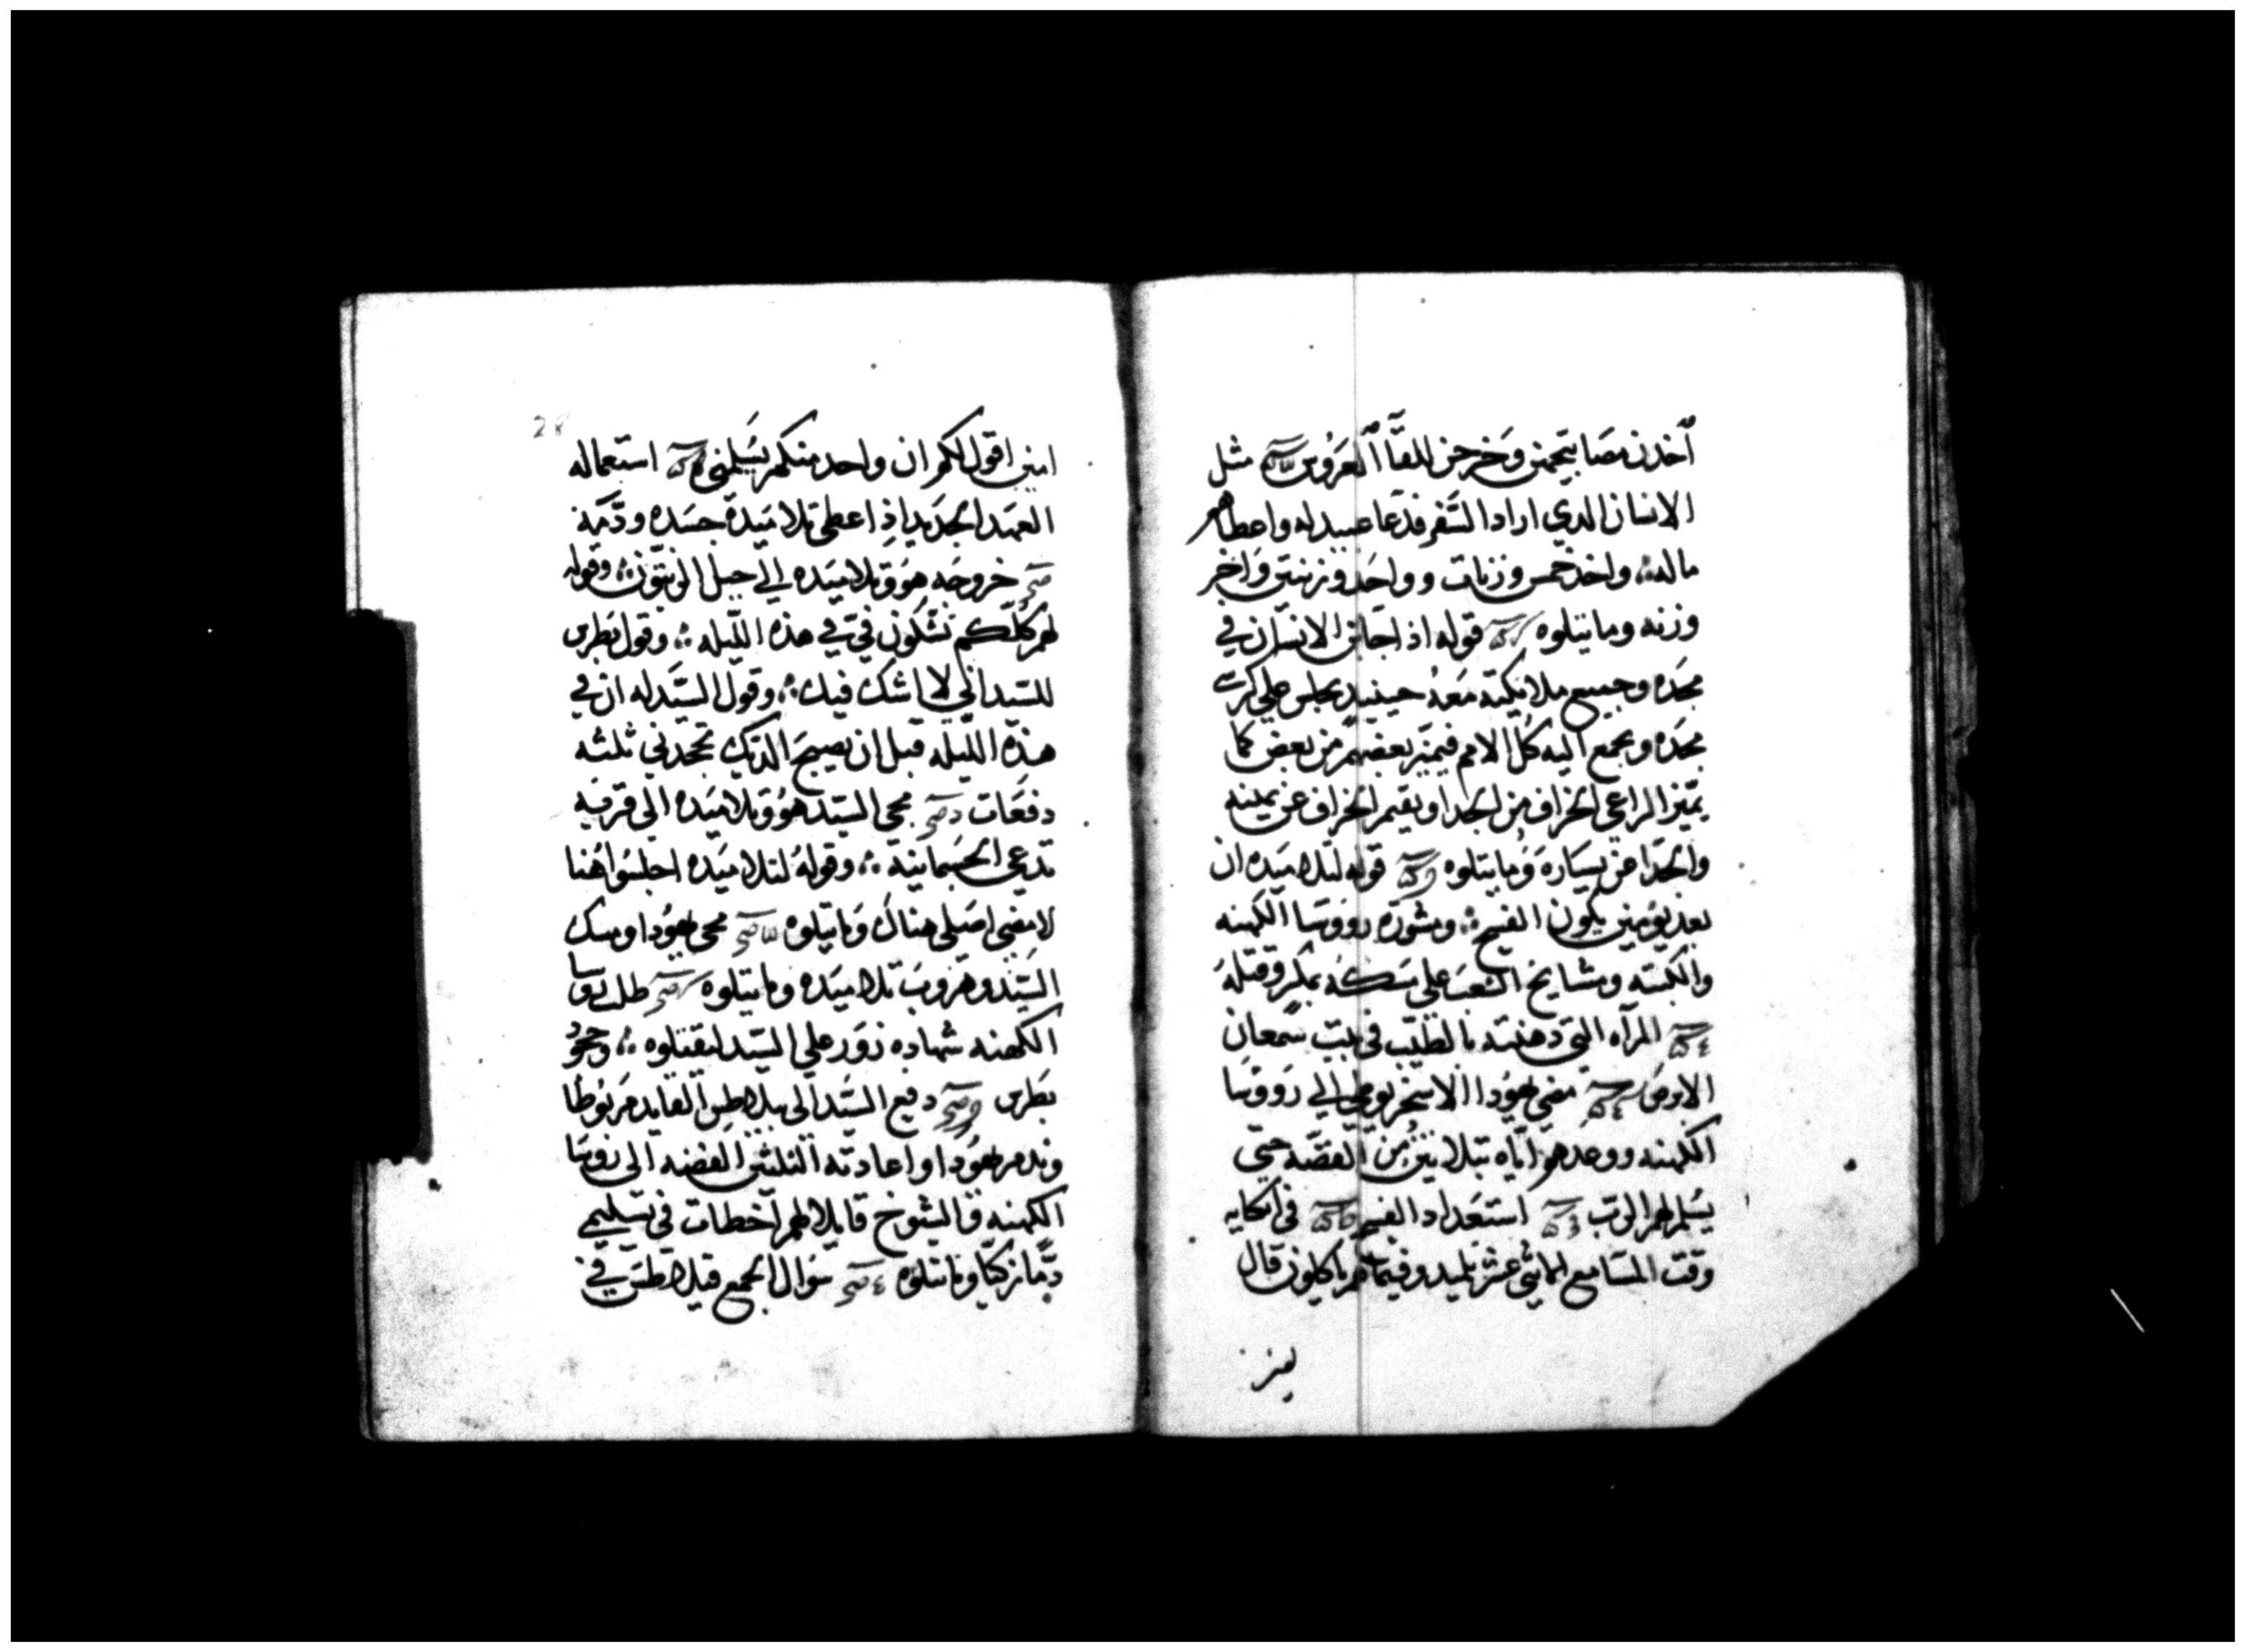 آخذن مصابيحهن وخرجن للقآ العروس مثل
الانسان الدي اراد السفر فدعا عبيد له واعطاهم
ماله؛ واخد خمس وزنات وواحد وزنتين واخر
وزنه وما يتلوه قوله اذا جا ابن الانسان في
مجده وجميع ملايكته معه حينيد يجلس علي كرسي
مجده ويجمع اليه كل الامم فيميز بعضهم من بعض كما
يميز الراعي الخراف من الجدا ويقيم الخراف عن يمينه
والجدا عن يساره وما يتلوه قوله لتلاميده ان
بعد يومين يكون الفسح؛ ومشورة رووسا الكهنه
والكتبه ومشايخ الشعب علي مسكه بمكر وقتله
المرآه التي دهنته بالطيب في بيت سمعان
الابرص مضي يهودا الاسخريوطي الي رووسا
الكهنه ووعدهم اياه بتلاتين من الفضه حتي
يسلم لهم الرب استعداد الفسح في اتكايه
وقت المسا مع الاتني عشر تلميد وفيما هم ياكلون قال
امين
28
امين اقول لكم ان واحد منكم يسلمني استعماله
العهد الجديد اذ اعطي تلاميده جسده ودمه
خروجه هو وتلاميده الي جبل الزيتون؛ وقوله
لهم كلكم تشكون في في هذه الليله؛ وقول بطرس
للسيد اني لا اشك فيك؛ وقول السيد له ان في
هذه الليله قبل ان يصيح الديك تجحدني ثلثه
دفعات مجي السيد هو وتلاميده الي قريه
تدعي الجسمانيه؛ وقوله لتلاميده اجلسوا هنا
لامضي اصلي هناك وما يتلوه مجي يهودا ومسك
السيد وهروب تلاميده وما يتلوه طلب روسا
الكهنه شهاده زور علي السيد ليقتلوه؛ وجحود
بطرس دفع السيد الي بيلاطس القايد مربوطا
وندم يهودا واعادته التلتين الفضه الي روسا
الكهنه والشيوخ قايلا لهم اخطات في تسليمي
دما زكيا وما يتلوه سوال الجمع فيلاطس في